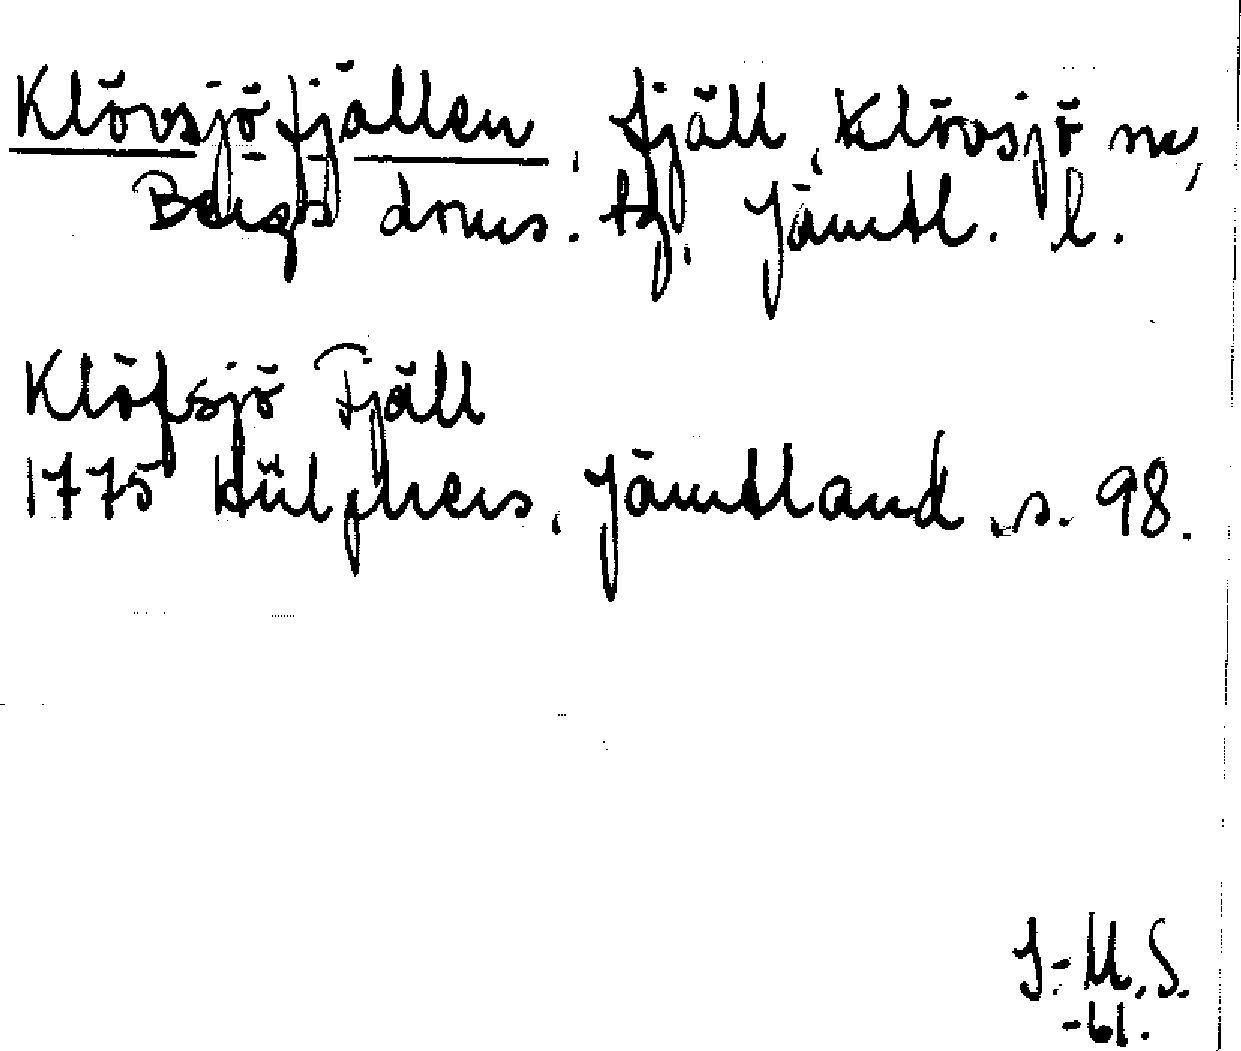 Klövsjöfjällen, fjäll, Klövsjö sn,
Bergs doms. tg, Jämtl. l.
Klöfsjö Fjäll
1775 Hülphers, Jämtland, s. 98.
I-M.S.
-61.